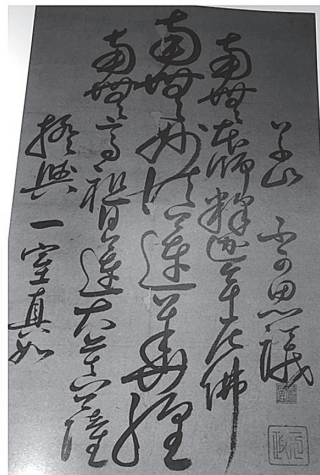 草山 不可思議
南無本師釋迦牟尼佛
南無妙法蓮華經
南無高祖日蓮大菩薩
授與 一 真如